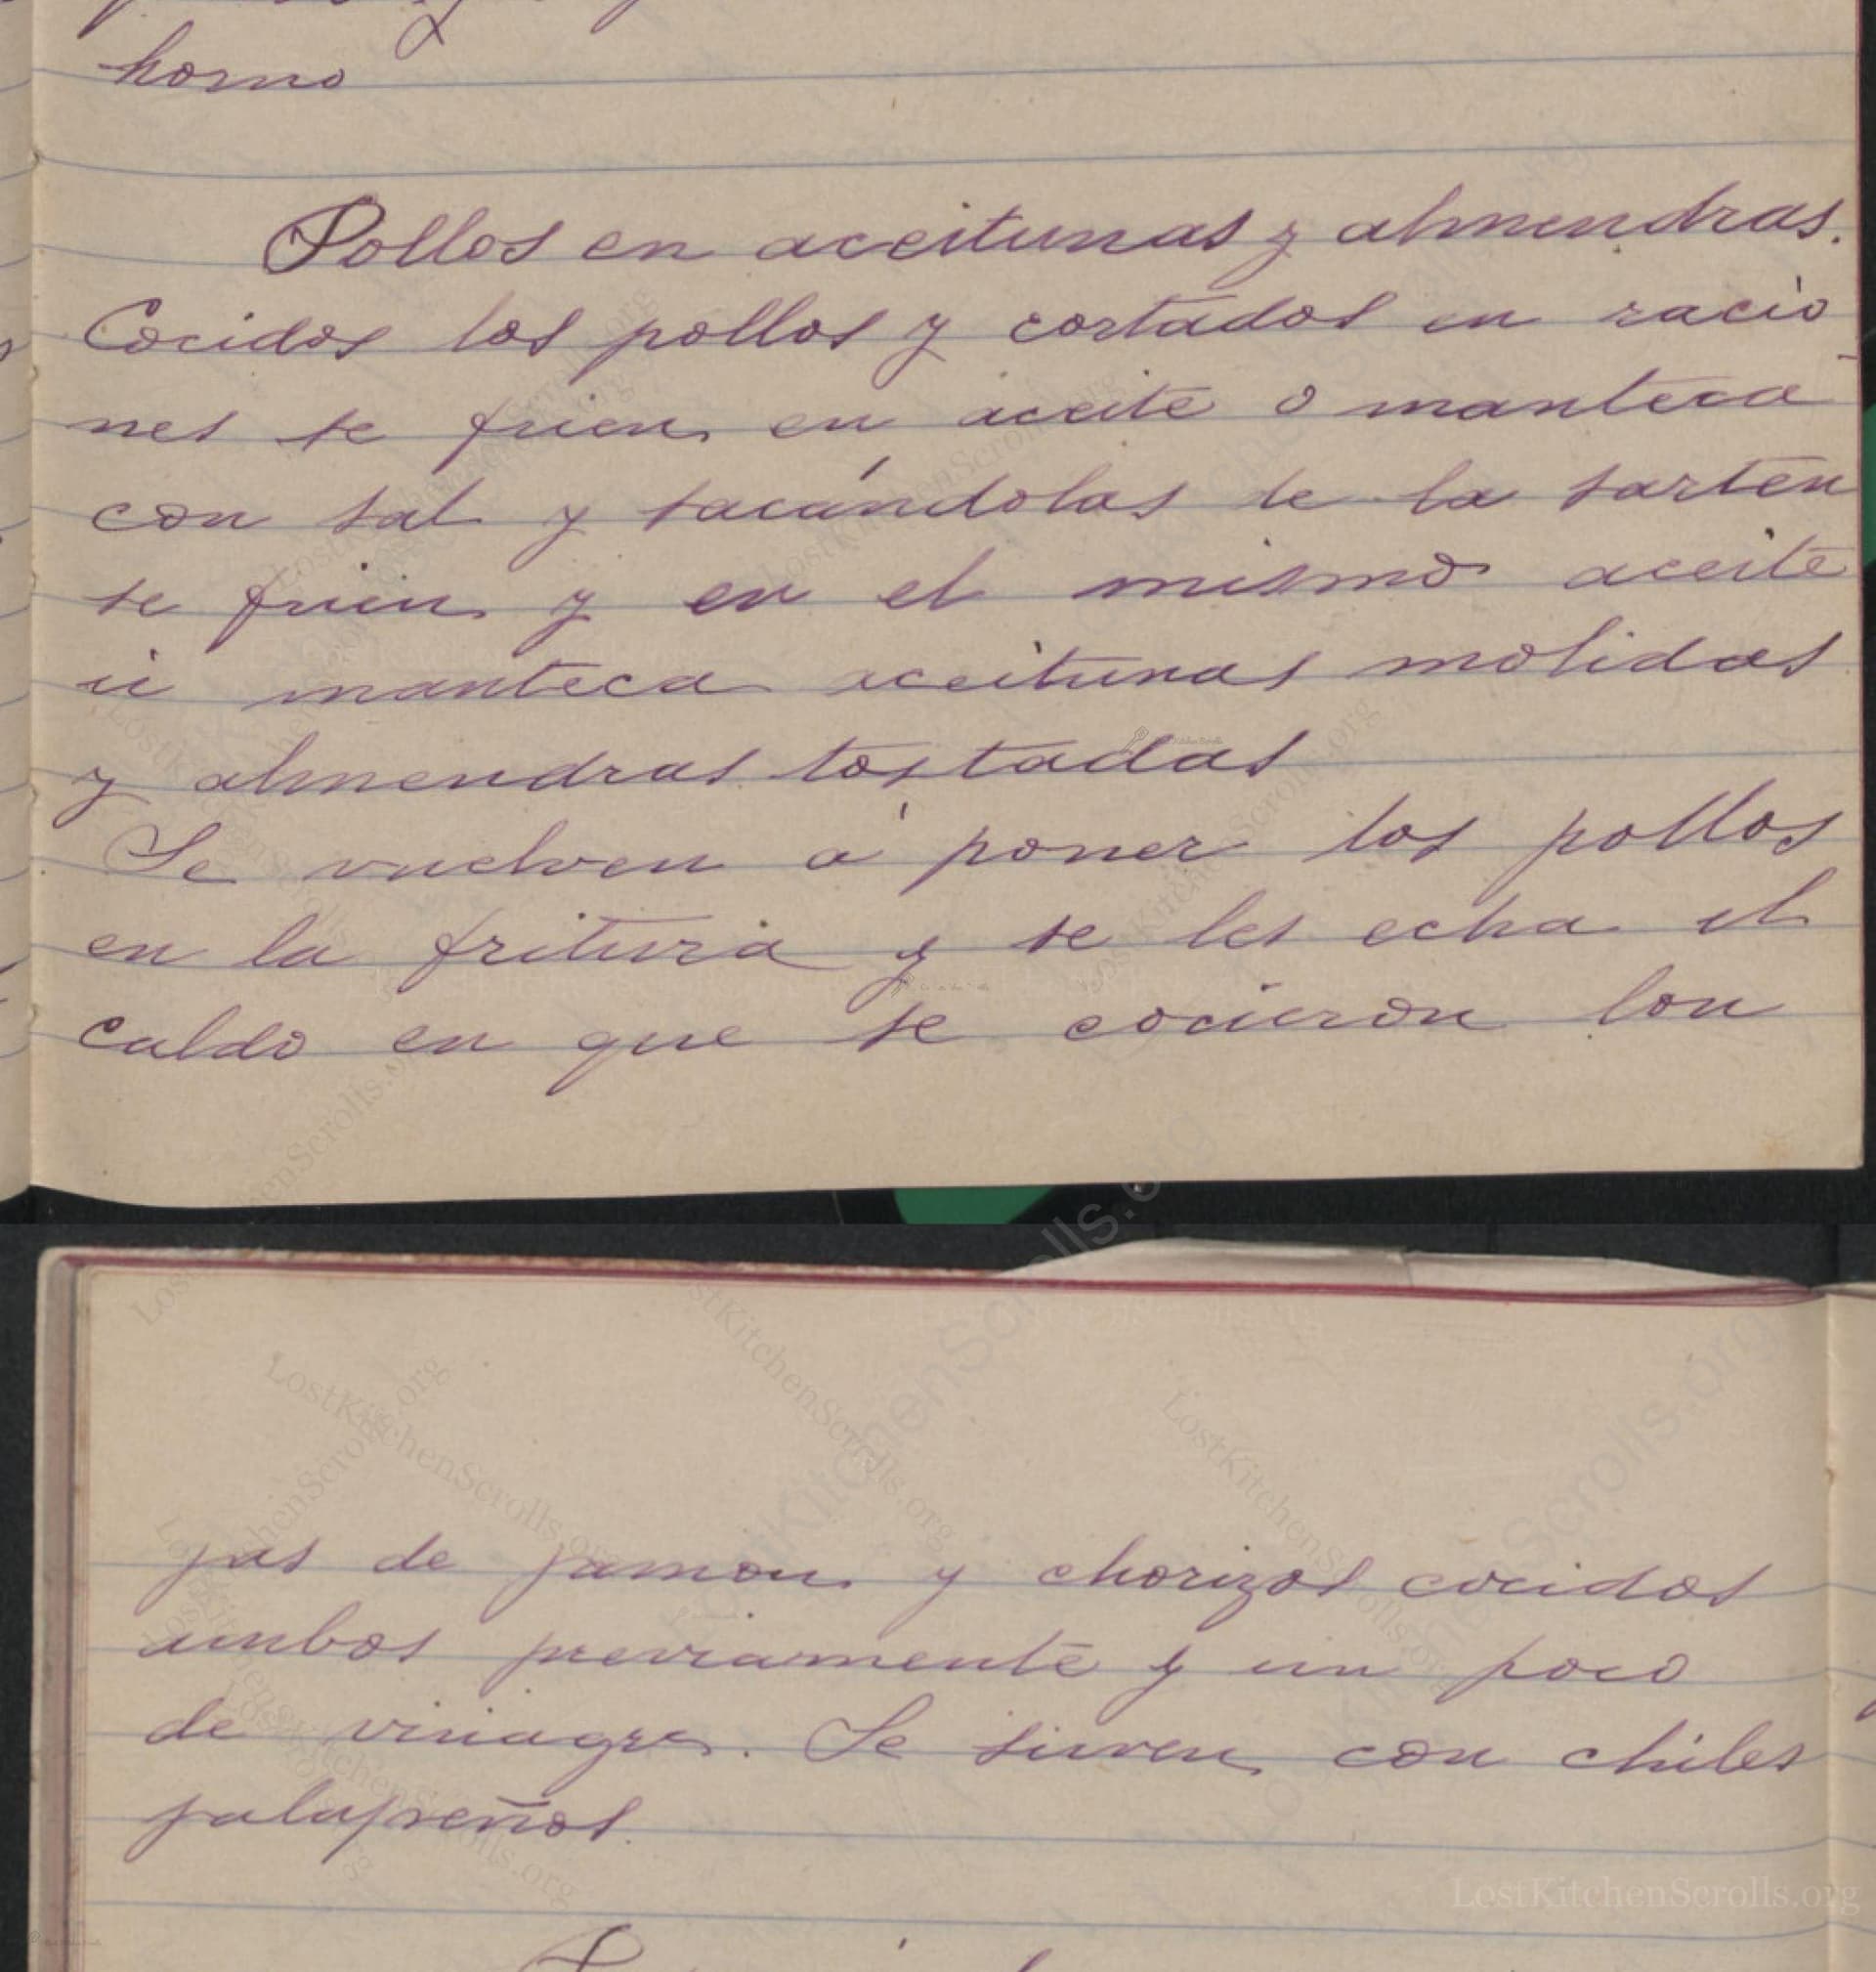 horno
Pollos en aceitunas y almendras.
Cocidos los pollos y cortados en racio-
nes se frien en aceite o manteca
con sal y sacándolas de la sarten
se frien y en el mismo aceite
ú manteca aceitunas molidas
y almendras tostadas
Se vuelven á poner los pollos
en la fritura y se les echa el
caldo en que se cocieron lon
jas de jamon y chorizos cocidos
ambos previamente y un poco
de vinagre. Se sirven con chiles
jalapeños.
LostKitchenScrolls.org